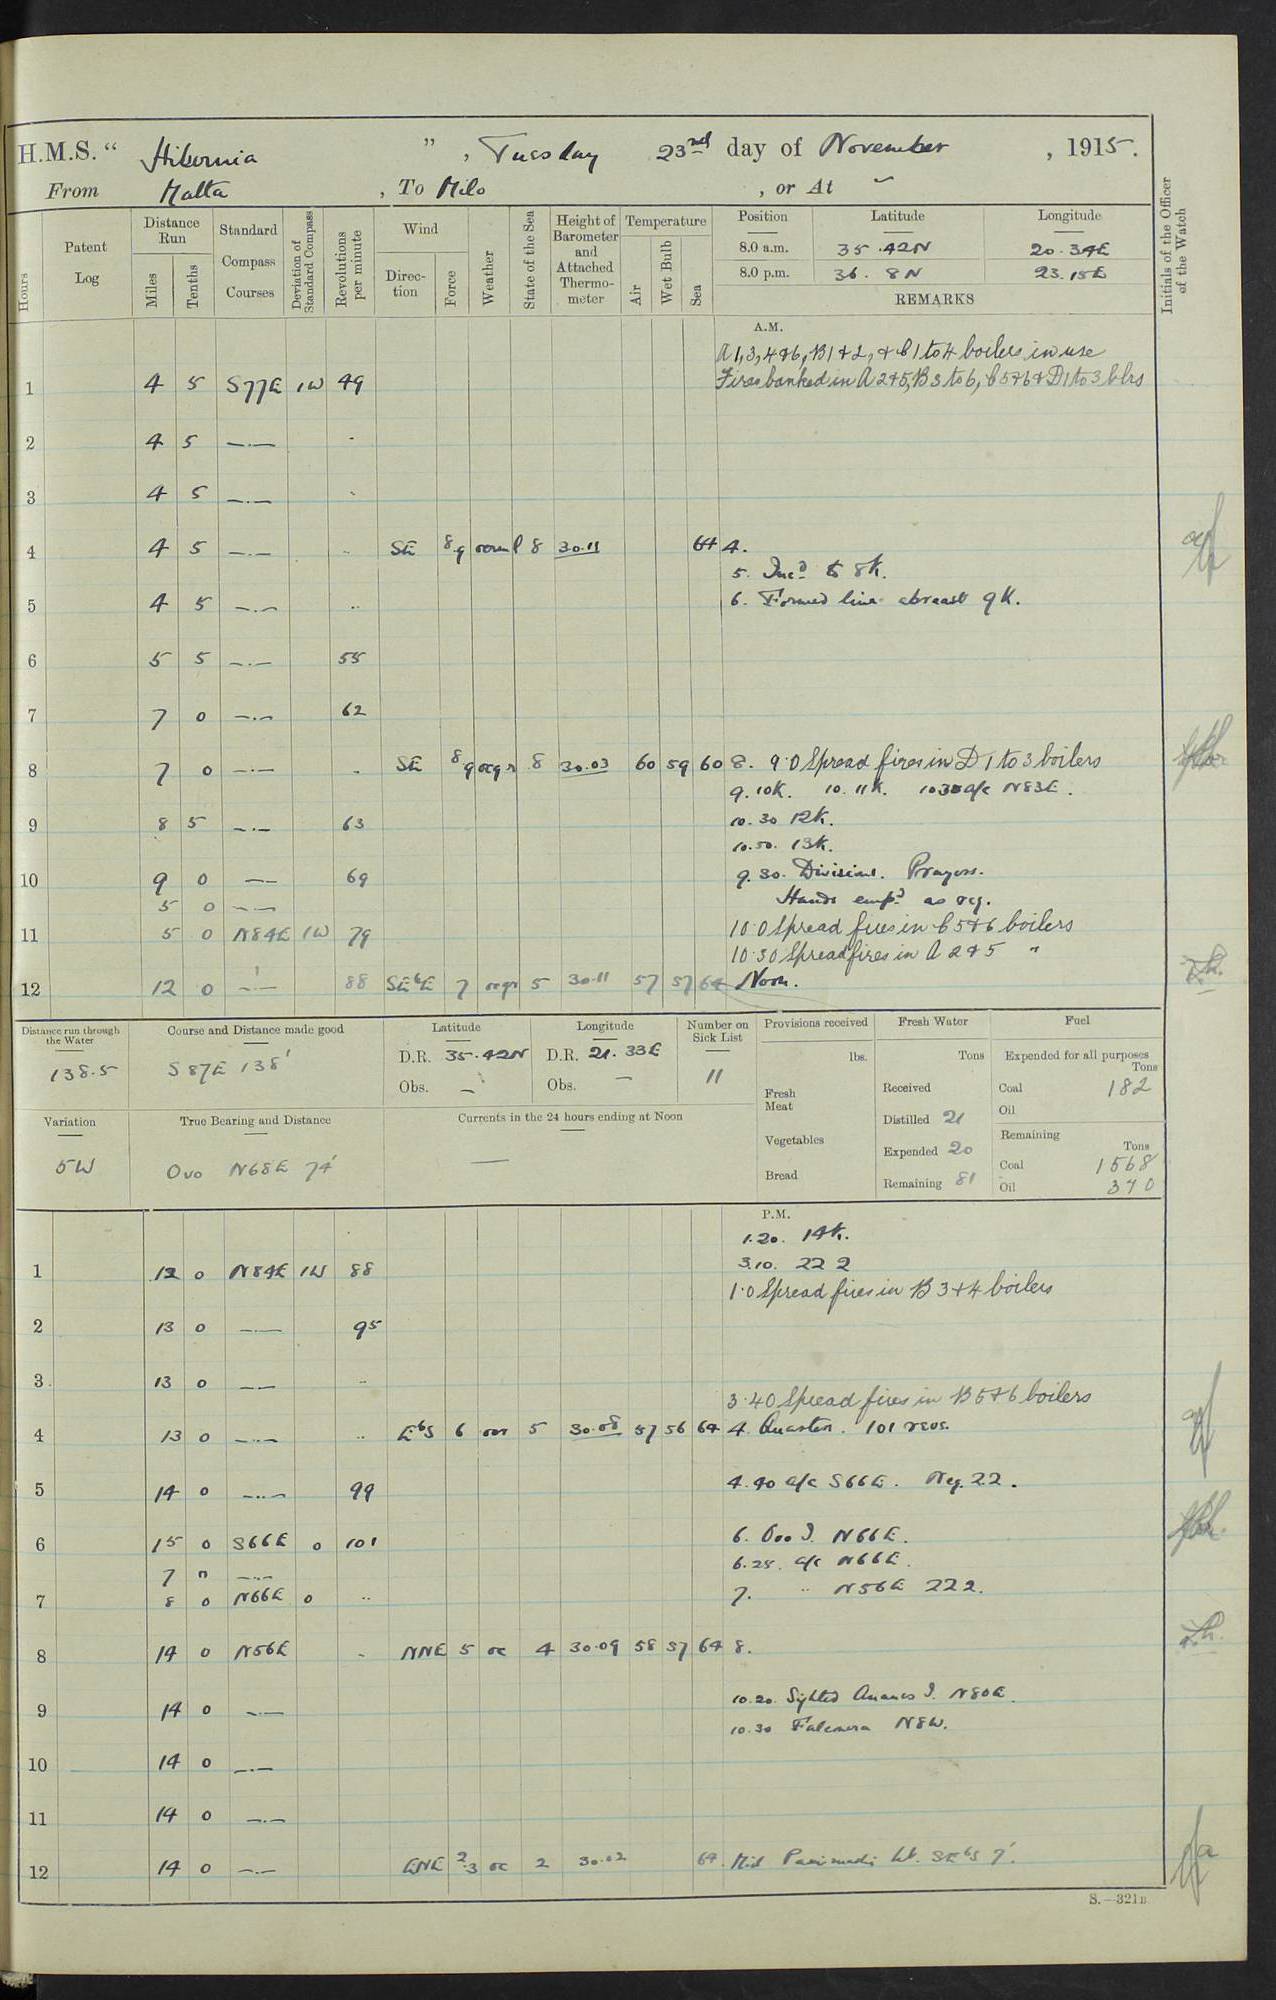 H.M.S. “ Hibernia ” , Tuesday 23rd day of November , 1915.
From Malta , To Milo , or At –
Hours
Patent Log
Distance Run
Miles
Tenths
Standard Compass Courses
Deviation of Standard Compass
Revolutions per minute
Wind
Direction
Force
Weather
State of the Sea
Height of Barometer and Attached Thermometer
Temperature
Air
Wet Bulb
Sea
Position Latitude Longitude
8.0 a.m. 35.42N 20.34E
8.0 p.m. 36.8N 23.15E
REMARKS
Initials of the Officer of the Watch
A.M.
A 1,3,4&6, B1&2, & C1 to 4 boilers in use
1 4 5 S77E 1W 49 Fires banked in A 2&5, B3 to 6, C5&6 & D1 to 3 blrs
2 4 5 —·— "
3 4 5 —·— "
4 4 5 —·— " SE 8.9 8 30.11 64 4.
5. Incd to 8K.
5 4 5 —·— " 6. Formed line abreast 9K.
6 5 5 —·— 55
7 7 0 —·— 62
8 7 0 —·— " SE 8.9 8 30.03 60 59 60 8. 9.0 Spread fires in D 1 to 3 boilers
9. 10K. 10. 11K. 10.30 a/c N83E.
9 8 5 —·— 63 10.30 12K.
10.50. 13K.
10 9 0 —— 69 9.30. Divisions. Prayers.
5 0 —— Hands empd as req.
11 5 0 N84E 1W 79 10.0 Spread fires in C 5&6 boilers
10.30 Spread fires in A 2&5 "
12 12 0 —·— 88 SEbE 7 5 30.11 57 57 64 Noon.
Distance run through the Water
138.5
Course and Distance made good
S87E 138'
Latitude
D.R. 35.42N
Obs. –
Longitude
D.R. 21.33E
Obs. –
Number on Sick List
11
Provisions received
lbs.
Fresh Meat
Vegetables
Bread
Fresh Water
Tons
Received
Distilled 21
Expended 20
Remaining 81
Fuel
Expended for all purposes
Tons
Coal 182
Oil
Remaining
Tons
Coal 1568
Oil 370
Variation
5W
True Bearing and Distance
Ovo N68E 74'
Currents in the 24 hours ending at Noon
—
P.M.
1.20. 14K.
1 12 0 N84E 1W 88 3.10. 22 2
1.0 Spread fires in B 3&4 boilers
2 13 0 —·— 95
3 13 0 —— "
3.40 Spread fires in B 5&6 boilers
4 13 0 —·— " EbS 6 5 30.08 57 56 64 4. Quarters. 101 revs.
5 14 0 —·— 99 4.40 a/c S66E. Neg. 22.
6 15 0 S66E 0 101 6. Ovo I. N66E.
7 0 —·— 6.28. a/c N66E.
7 8 0 N66E 0 " 7. " N56E 222.
8 14 0 N56E " NNE 5 oc 4 30.09 58 57 64 8.
9 14 0 —·— 10.20. Sighted Ananes I. N80E.
10.30 Falconera N8W.
10 14 0 —·—
11 14 0 —·—
12 14 0 —·— ENE 2.3 oc 2 30.02 64. Mid Lt. SEbS 7'.
S.—321B